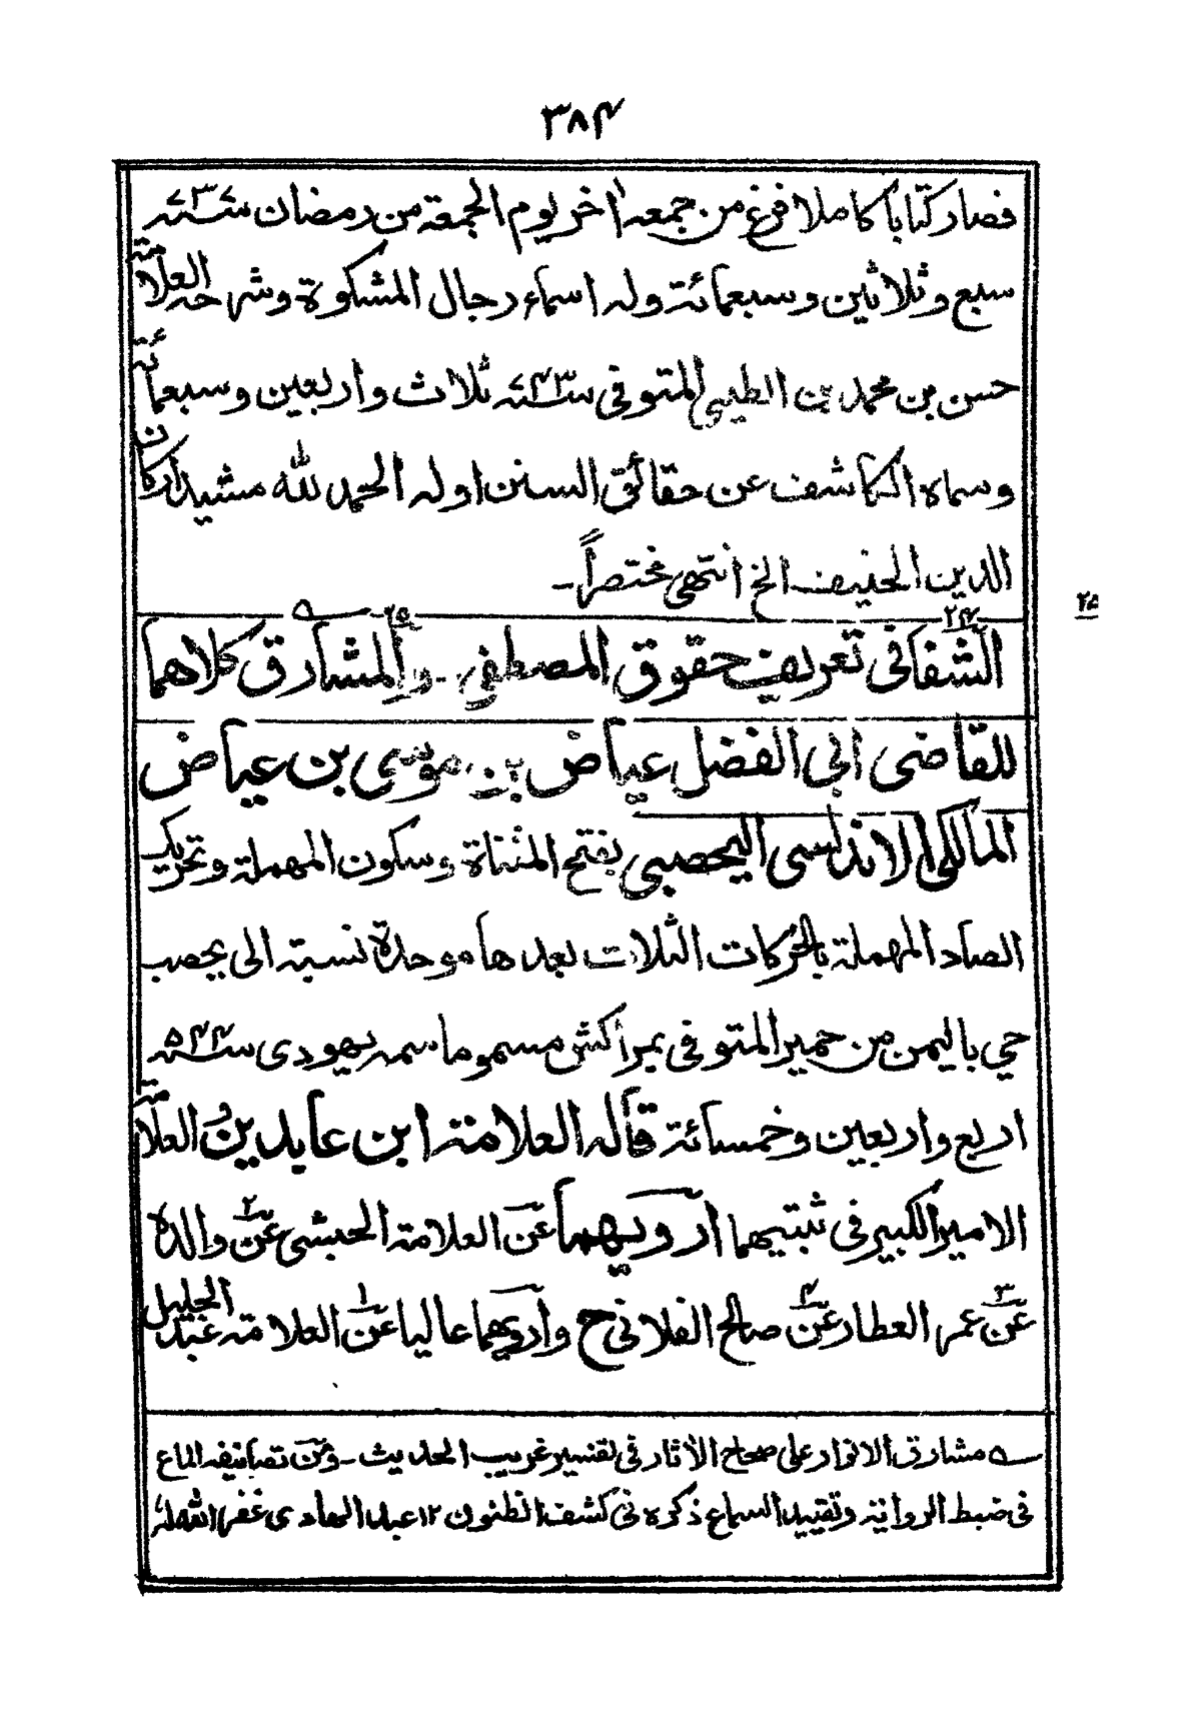 ٣٨٤
فصار كتابا كاملا فرغ من جمعه اخر يوم الجمعة من رمضان سنة ٧٣٧
سبع وثلاثين وسبعمائة وله اسماء رجال المشكوة وشرحه العلامة
حسن بن محمد بن الطيبي المتوفى سنة ٧٤٣ ثلاث واربعين وسبعمائة
وسماه الكاشف عن حقائق السنن اوله الحمد لله مشيد اركان
الدين الحنيف الخ انتهى مختصراً-
٢٥
٢٤ ٢٥ ٥
الشفا فى تعريف حقوق المصطفى - والمشارق كلاهما
للقاضى ابى الفضل عياض بن موسى بن عياض
المالكى الاندلسى اليحصبى بفتح المثناة وسكون المهملة وتحريك
الصاد المهملة بالحركات الثلاث بعدها موحدة نسبة الى يحصب
حي باليمن من حمير المتوفى بمراكش مسموما سمه يهودى سنة ٥٤٤
اربع واربعين وخمسائة قاله العلامة ابن عابدين والعلامة
الامير الكبير فى ثبتيهما ارويهما عن العلامة الحبشى عن ٢ والده
عن ٣ عمر العطار عن ٤ صالح الفلانى ح وارويهما عاليا عن ١ العلامة عبد الجليل
٥ مشارق الانوار على صحاح الأثار فى تفسير غريب الحديث - ومن تصانيفه الماع
فى ضبط الرواية وتقييد السماع ذكره فى كشف الظنون ١٢ عبد الهادى غفر الله له